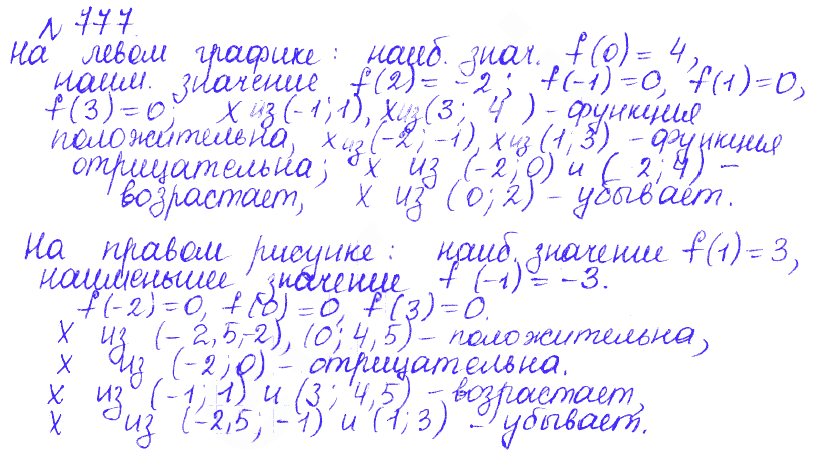 № 777.
На левом графике: наиб. знач. f(0) = 4,
наим. значение f(2) = -2; f(-1) = 0, f(1) = 0,
f(3) = 0; x из (-1; 1), x из (3; 4) - функция
положительна, x из (-2; -1), x из (1; 3) - функция
отрицательна; x из (-2; 0) и (2; 4) -
возрастает, x из (0; 2) - убывает.
На правом рисунке: наиб. значение f(1) = 3,
наименьшее значение f(-1) = -3.
f(-2) = 0, f(0) = 0, f(3) = 0.
x из (-2,5; -2), (0; 4,5) - положительна,
x из (-2; 0) - отрицательна.
x из (-1; 1) и (3; 4,5) - возрастает,
x из (-2,5; -1) и (1; 3) - убывает.